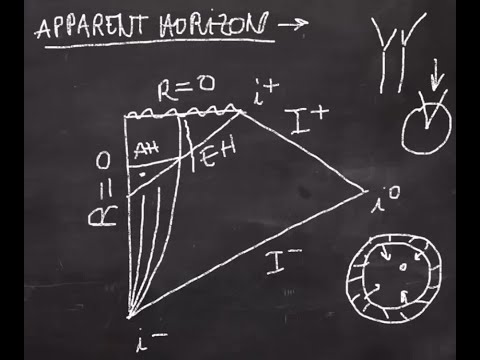 APPARENT HORIZON →
R=0
i+
I+
AH
EH
R=0
i0
I-
i-